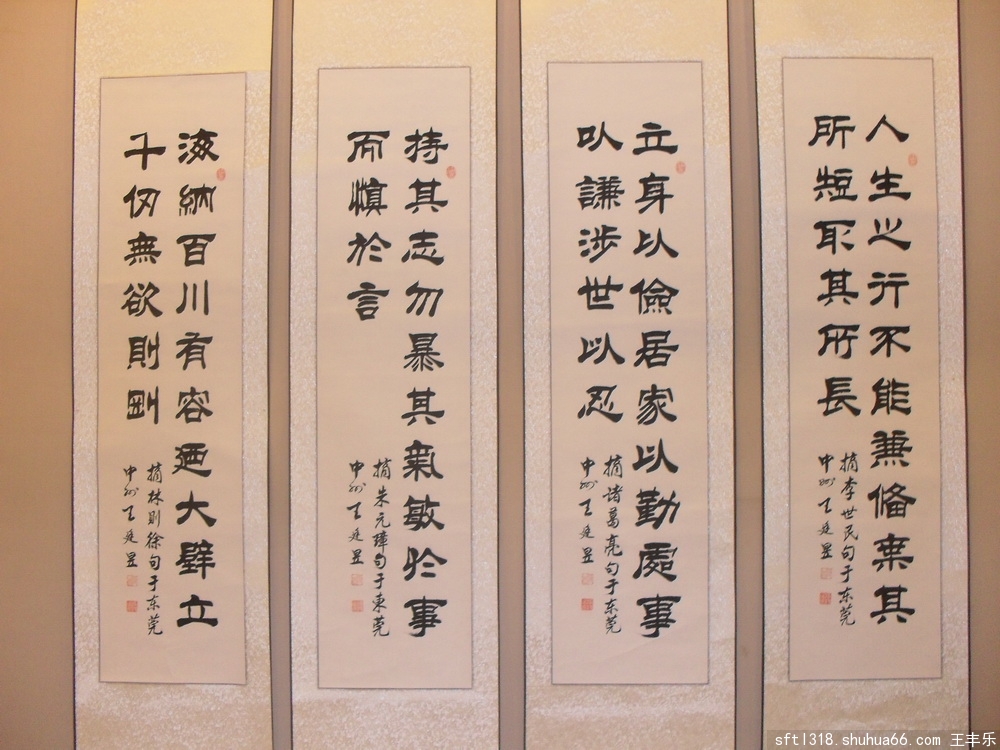 人生之行不能兼備棄其
所短取其所長
摘李世民句于东莞
中州王廷昱
立身以儉居家以勤處事
以謙涉世以忍
摘诸葛亮句于东莞
中州王廷昱
持其志勿暴其氣敏於事
而慎於言
摘朱元璋句于東莞
中州王廷昱
海納百川有容廼大壁立
千仞無欲則剛
摘林则徐句于东莞
中州王廷昱
sftl318.shuhua66.com 王丰乐